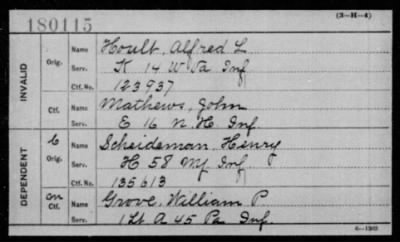 180115
(3—H—4)
INVALID
Orig.
Name Hoult, Alfred L
Serv. K 14 W Va Inf
Ctf. No. 123937
Ctf.
Name Mathews, John
Serv. E 16 N.H. Inf.
DEPENDENT
6
Orig.
Name Scheideman, Henry
Serv. H 58 Inf
Ctf. No. 135613
on
Ctf.
Name Grove, William P
Serv. 1 Lt A 45 Pa Inf.